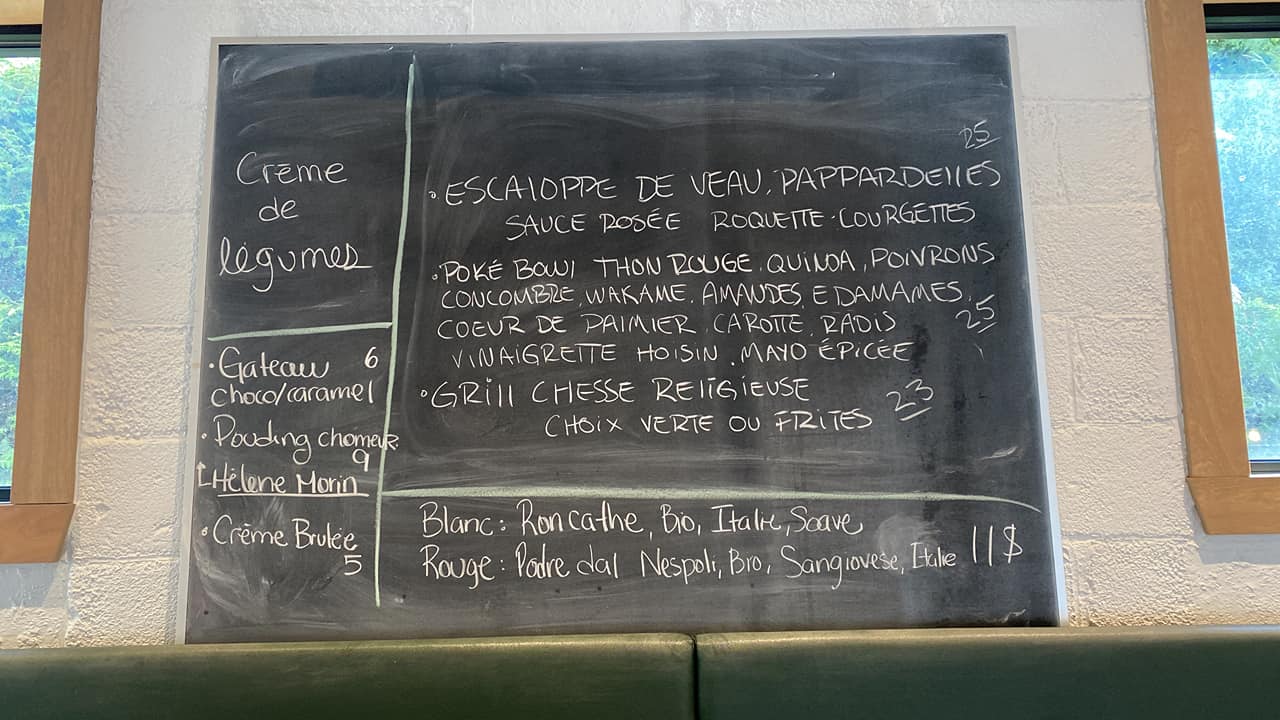 Crème
de
légumes
• Gateau 6
choco/caramel
• Pouding chomeur
9
Hélène Morin
• Crème Brulée
5
25
• ESCALOPPE DE VEAU, PAPPARDELLES
SAUCE ROSÉE ROQUETTE·COURGETTES
• POKÉ BOWL THON ROUGE, QUINOA, POIVRONS
CONCOMBRE, WAKAME, AMANDES, EDAMAMES,
COEUR DE PALMIER, CAROTTE, RADIS 25
VINAIGRETTE HOISIN, MAYO ÉPICÉE
• GRILL CHESSE RELIGIEUSE 23
CHOIX VERTE OU FRITES
Blanc: Roncathe, Bio, Italie, Soave
Rouge: Podre dal Nespoli, Bio, Sangiovese, Italie 11$